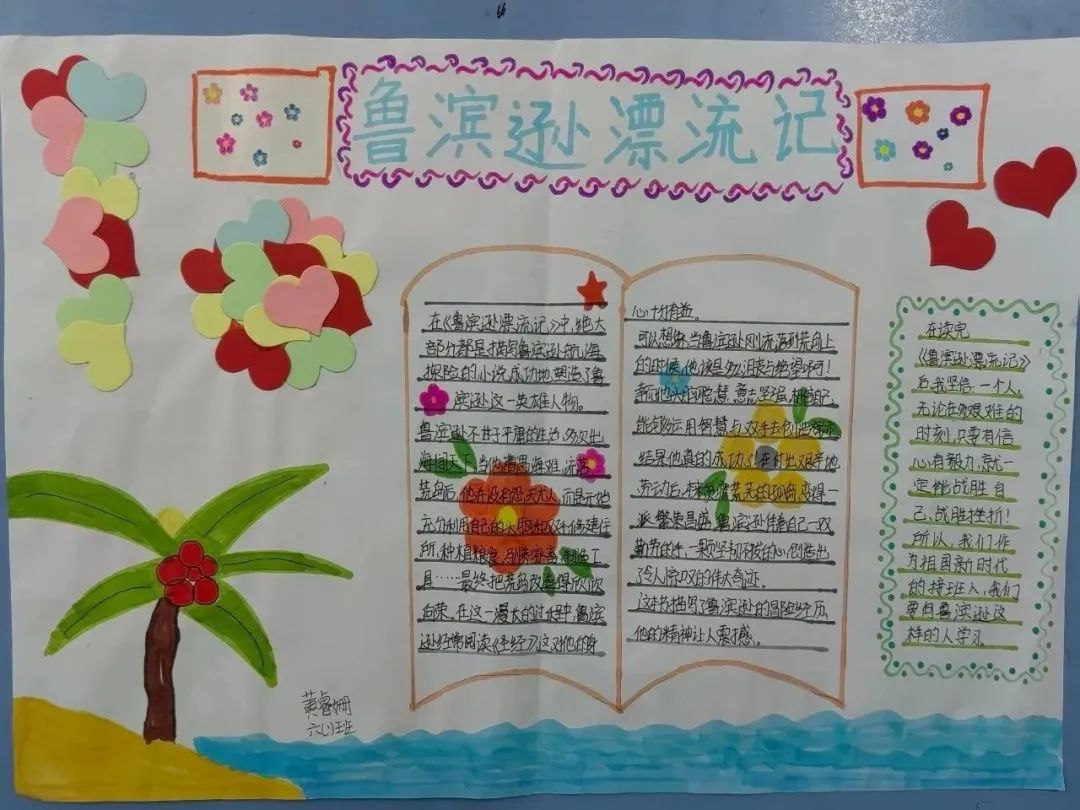 鲁滨逊漂流记
在《鲁滨逊漂流记》中,绝大
部分都是描写鲁滨逊航海
探险的小说成功地塑造了鲁
滨逊这一英雄人物。
鲁滨逊不甘于平庸的生活,多次出
海闯天下,当他遭遇海难,流落
荒岛后,他并没有怨天尤人,而是开始
充分利用自己的头脑和双手修建住
所,种植粮食,驯养家畜,制造工
具……最终把荒岛改造得欣欣
向荣。在这一漫长的过程中,鲁滨
逊经常阅读《圣经》,这对他的身
心十分有益。
可以想象,当鲁滨逊刚流落到荒岛上
的时候,他该是多么沮丧与绝望啊!
幸亏他头脑聪慧,意志坚强,相信自己,
能够运用智慧与双手去创造
结果他真的成功了!在付出艰辛地
劳动力后,本来荒芜的孤岛,变得一
派繁荣昌盛,鲁滨逊凭着自己一双
勤劳的手,一颗坚韧不拔的心,创造出
了令人惊叹的伟大奇迹。
这本书描写了鲁滨逊的冒险经历,
他的精神让人震撼。
在读完
《鲁滨逊漂流记》
后,我坚信:一个人,
无论在多艰难的
时刻,只要有信
心,有毅力,就一
定能战胜自
己,战胜挫折!
所以,我们作
为祖国新时代
的接班人,我们
要向鲁滨逊这
样的人学习
黄睿姗
六(1)班